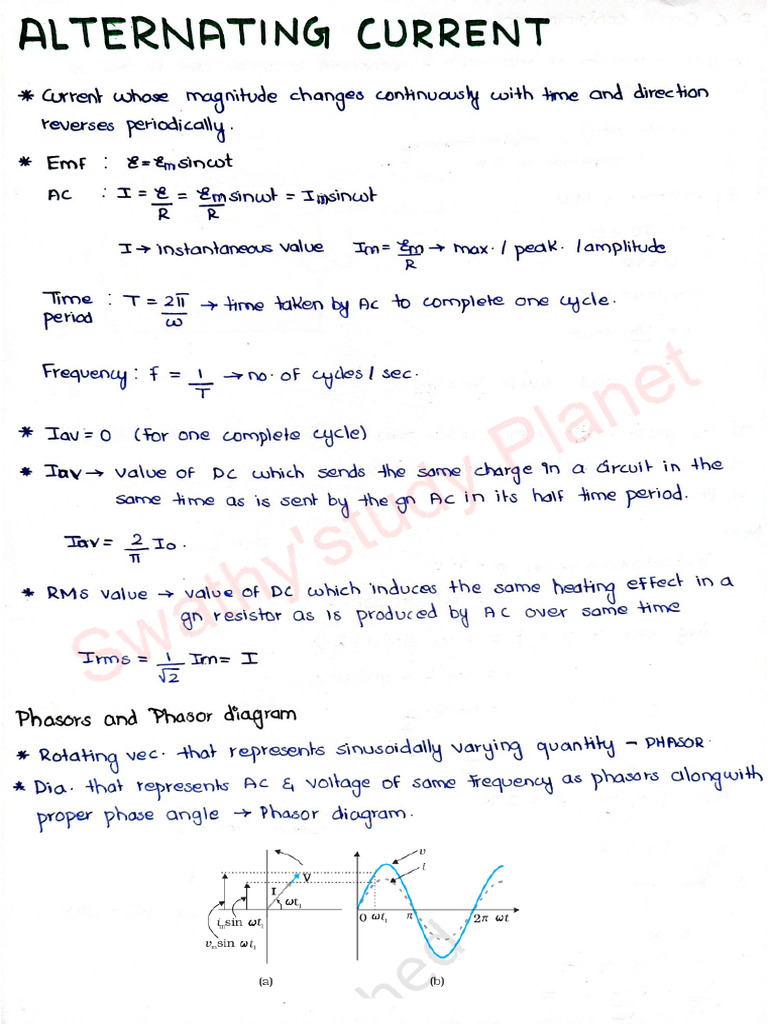 ALTERNATING CURRENT
* Current whose magnitude changes continuously with time and direction
reverses periodically.
* Emf : ℰ = ℰm sinωt
AC : I = ℰ/R = ℰm/R sinωt = Im sinωt
I → instantaneous value Im = ℰm/R → max. / peak. / amplitude
Time period : T = 2π/ω → time taken by AC to complete one cycle.
Frequency : f = 1/T → no. of cycles / sec.
* Iav = 0 (for one complete cycle)
* Iav → value of DC which sends the same charge in a circuit in the
same time as is sent by the gn AC in its half time period.
Iav = 2/π Io.
* RMS value → value of DC which induces the same heating effect in a
gn resistor as is produced by AC over same time
Irms = 1/√2 Im = I
Phasors and Phasor diagram
* Rotating vec. that represents sinusoidally varying quantity – PHASOR.
* Dia. that represents AC & voltage of same frequency as phasors alongwith
proper phase angle → Phasor diagram.
V
I
ωt₁
iₘsin ωt₁
vₘsin ωt₁
(a)
v
i
0 ωt₁ π 2π ωt
(b)
Swathy'study Planet
hed